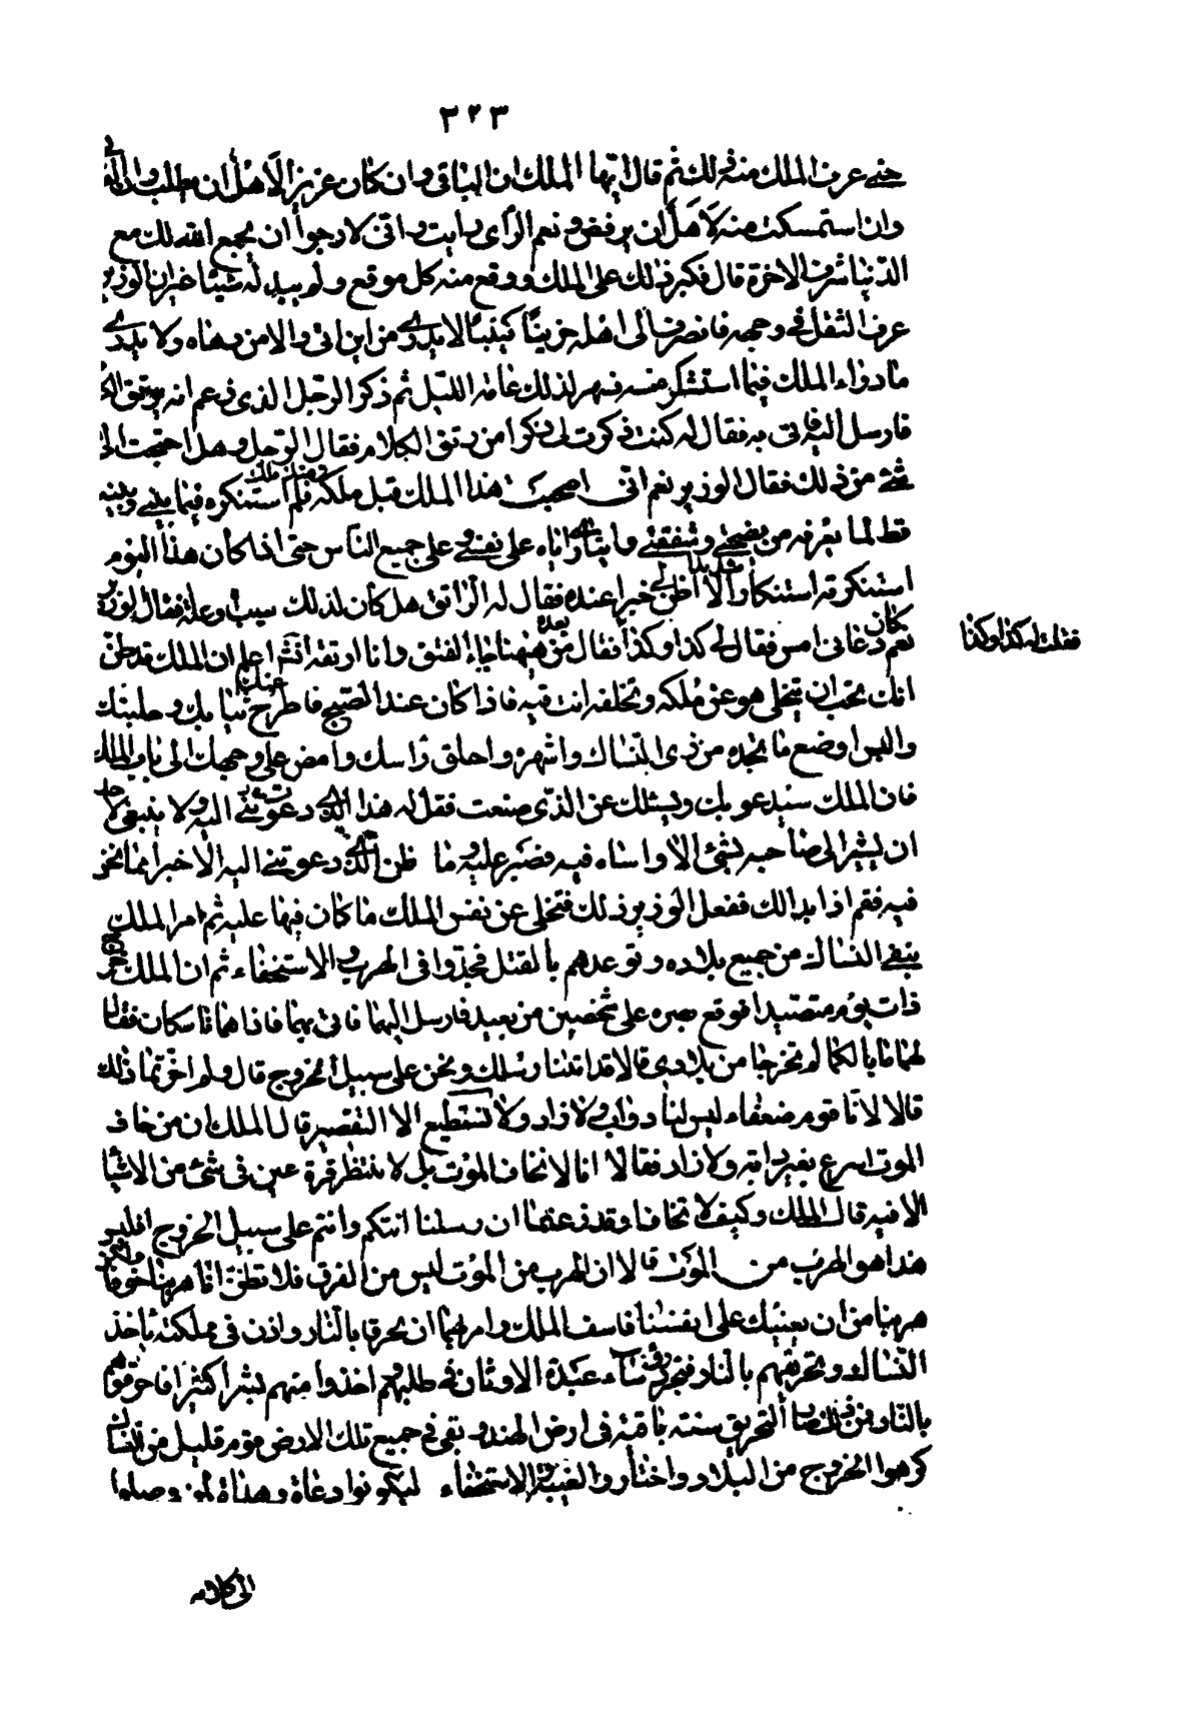 ٣٢٣
حتى عرف الملك منه ذلك ثم قال ايها الملك ان الباقى وان كان عزيزا لأهل ان يطلب وان الفانى
وان استمسكت منه لأهل ان يرفض ونعم الرأى رأيت وانى لارجوا ان يجمع الله لك مع
الدنيا شرف الاخرة قال فكبر ذلك على الملك ووقع منه كل موقع ولم يبد له شيئا غير ان الوزير
عرف الثقل فى وجهه فانصرف الى اهله حزينا كئيبا لا يدرى من اين اتى ولا من دهاه ولا يدرى
ما دواء الملك فيما استنكر منه فسهر لذلك عامة الليل ثم ذكر الرجل الذى زعم انه يرتق الكلام
فارسل اليه فاتى به فقال له كنت ذكرت لى ذكرا من رتق الكلام فقال الرجل وهل احتجت الى
شئ من ذلك فقال الوزير نعم انى اصحبت هذا الملك قبل ملكه ومنذ ملك فلم استنكره فيما بينى وبينه
قط لما يعرفه من نصيحتى وشفقتى وايثارى اياه على نفسى وعلى جميع الناس حتى اذا كان هذا اليوم
استنكرته استنكارا شديدا ولا اظن لى خيرا عنده فقال له الراتق هل كان لذلك سبب او علة فقال الوزير
نعم دعانى امس فقال لى كذا وكذا فقال من هيهنا جاء الفتق وانا ارتقه انشاء الله اعلم ان الملك قد ظن
فقلت له كذا وكذا
انك تحب ان يتخلى هو عن ملكه وتخلفه انت فيه فاذا كان عند الصبح فاطرح عنك ثيابك وحليتك
والبس اوضع ما تجده من زى النساك واشهره واحلق رأسك وامض على وجهك الى باب الملك
فان الملك سيدعو بك ويسئلك عن الذى صنعت فقل له هذا الذى دعوتنى اليه ولا ينبغى لاحد
ان يشير الى صاحبه بشئ الا واساه فيه وصبر عليه وما اظن الذى دعوتنى اليه الا خيرا مما نحن
فيه فقم اذا بدا لك ففعل الوزير ذلك فتخلى عن نفس الملك ما كان فيها عليه ثم امر الملك
بنفى النساك من جميع بلاده وتوعدهم بالقتل فجدوا فى الهرب والاستخفاء ثم ان الملك خرج
ذات يوم متصيدا فوقع بصره على شخصين من بعيد فارسل اليهما فاتى بهما فاذا هما ناسكان فقال
لهما ما بالكما لم تخرجا من بلادى قالا قد اتتنا رسلك ونحن على سبيل الخروج قال ولم اخرتما ذلك
قالا لانا قوم ضعفاء ليس لنا دواب ولا زاد ولا نستطيع الا التقصير قال الملك ان من خاف
الموت اسرع بغير دابة ولا زاد فقالا انا لا نخاف الموت بل لا ننتظر قرة عين فى شئ من الاشياء
الا فيه قال الملك وكيف لا تخافا وقد زعمتما ان رسلنا اتتكم وانتم على سبيل الخروج افليس
هذا هو الهرب من الموت قالا ان الهرب من الموت ليس من الفرق فلا تظن انا هربنا خوفا ولكن
هربنا من ان نعينك على انفسنا فاسف الملك وامر بهما ان يحرقا بالنار واذن فى مملكته باخذ
النساك وتحريقهم بالنار فتجرد رؤساء عبدة الاوثان فى طلبهم واخذوا منهم بشرا كثيرا فاحرقوهم
بالنار فمن ذلك صار التحريق سنة باقية فى ارض الهند وبقى فى جميع تلك الارض قوم قليل من النساك
كرهوا الخروج من البلاد واختاروا الغيبة والاستخفاء ليكونوا دعاة وهداة لمن وصلوا
الى كلامه